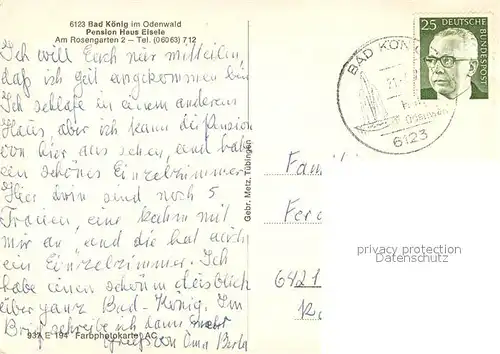 6123 Bad König im Odenwald
Pension Haus Eisele
Am Rosengarten 2 – Tel. (06063) 712
Ich will Euch nur mitteilen,
daß ich gut angekommen bin
Ich schlafe in einem anderen
Haus, aber ich kann die Pension
von hier aus sehen, und habe
ein schönes Einzelzimmer
Hier drin sind noch 5
Frauen, eine kahm mit
mir an, und die hat auch
ein Einzelzimmer. Ich
habe einen schönen
über ganz Bad-König. Im
Brief schreibe ich dann mehr
Grüße von Oma Berta
937 E 194 Farbphotokarte AC
Gebr. Metz, Tübingen
BAD KÖNIG
6123
25 DEUTSCHE BUNDESPOST
Famil
Ferd
6421
privacy protection
www.oldthing.com